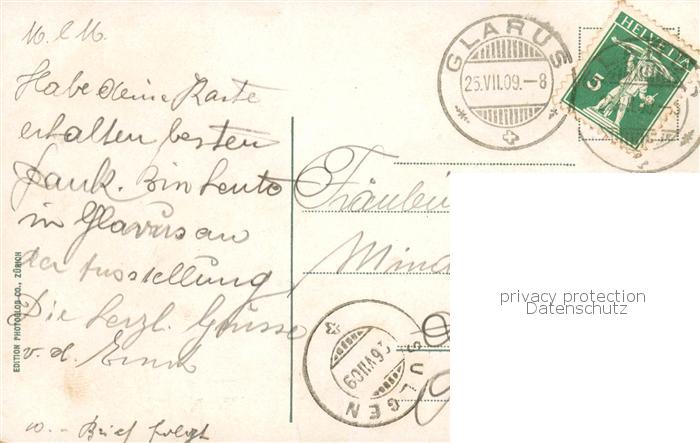 M. l. M.
Habe deine Karte
erhalten besten
Dank. Bin heute
in Glarus an
der Ausstellung
Die herzl. Grüsse
v. d.
Brief folgt
EDITION PHOTOGLOB-CO., ZÜRICH
GLARUS
25.VII.09.-8
HELVETIA
5
Fräulein
SULGEN
privacy protection
Datenschutz